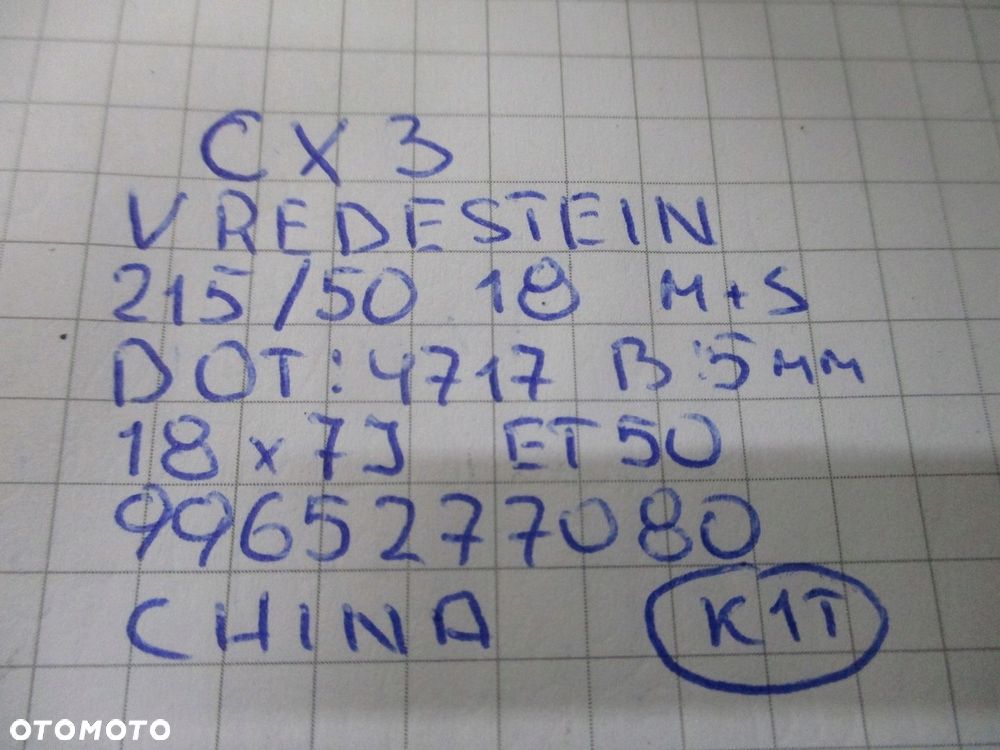 CX 3
VREDESTEIN
215/50 18 M+S
DOT: 4717 B:5mm
18x7J ET50
9965277080
CHINA K1T
OTOMOTO